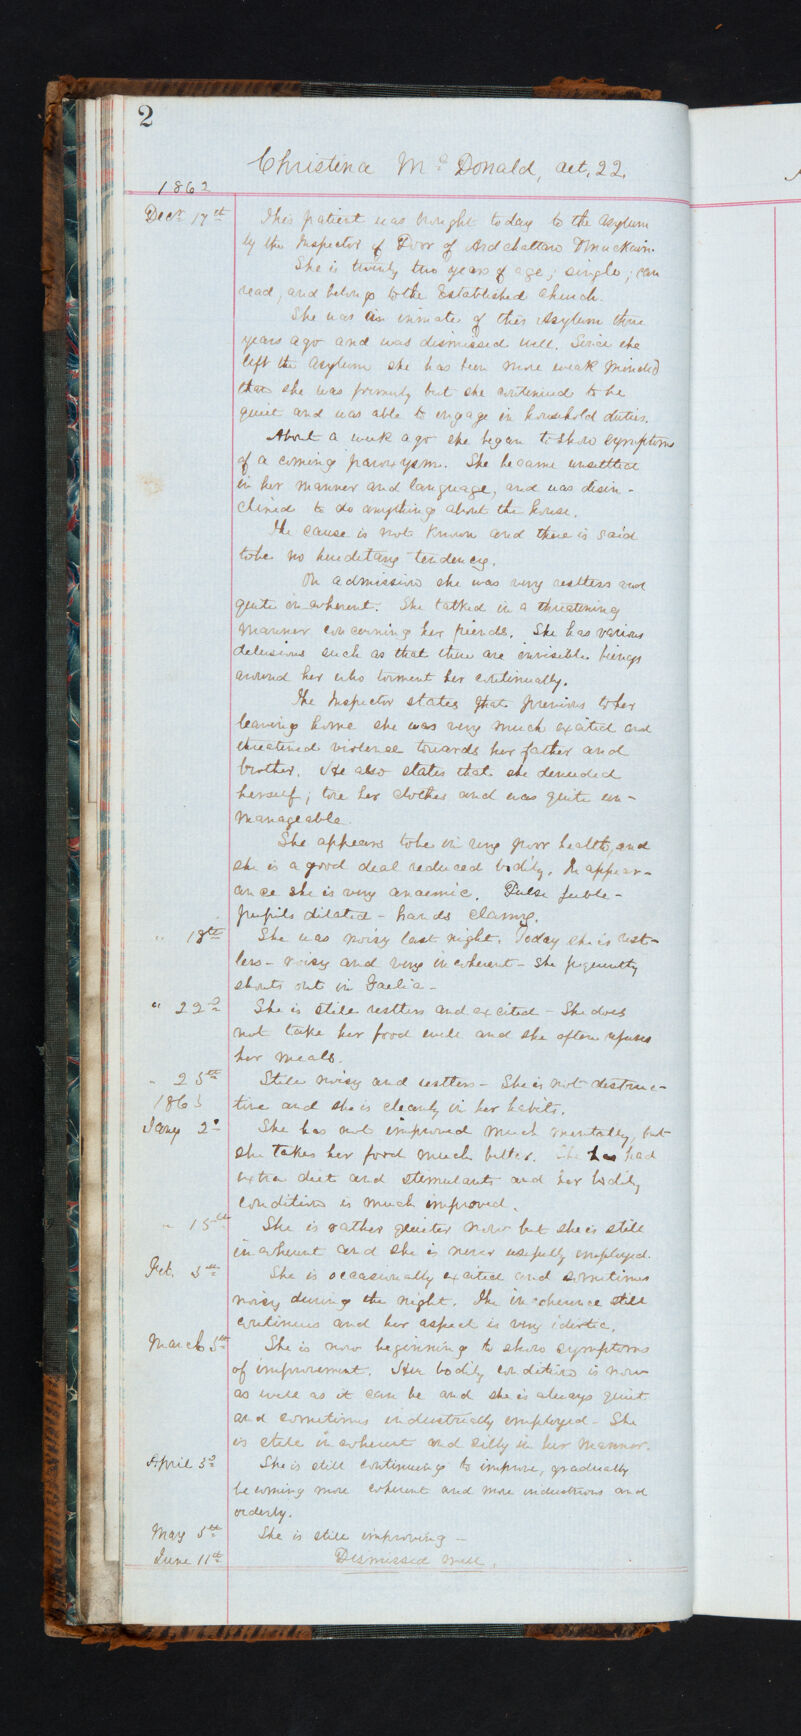 2
Christina McDonald, aet. 22.
1862
Decr 17th This patient was brought today to the Asylum
by the Inspector of Poor of Ardchattan & Muckairn.
She is twenty two years of age; single; can
read, and belongs to the Established Church.
She was an inmate of this Asylum three
years ago and was dismissed well. Since she
left the Asylum she has been more weak minded
than she was formerly but she continued to be
quiet and was able to engage in household duties.
About a week ago she began to show symptoms
of a coming paroxysm. She became unsettled
in her manner and language, and was disin-
clined to do anything about the house.
The cause is not known and there is said
to be no hereditary tendency.
On admission she was very restless and
quite incoherent. She talked in a threatening
manner concerning her friends. She has various
delusions such as that there are invisible beings
around her who torment her continually.
The Inspector states that previous to her
leaving home she was very much excited and
threatened violence towards her father and
brother. He also states that she denuded
herself; tore her clothes and was quite un-
manageable.
She appears to be in very poor health, and
she is a good deal reduced bodily. In appear-
ance she is very anaemic. Pulse feeble -
pupils dilated - hands clammy.
" 18th She was noisy last night. Today she is rest-
less - noisy and very incoherent - She frequently
shouts out in Gaelic -
" 22d She is still restless and excited - She does
not take her food well and she often refuses
her meals.
" 25th Still noisy and restless - She is not destruc-
1863 tive and she is cleanly in her habits.
Jany 2d She has not improved much mentally, but
she takes her food much better. She has had
extra diet and stimulants and her bodily
condition is much improved.
" 15th She is rather quieter now but she is still
incoherent and she is never usefully employed.
Feb. 5th She is occasionally excited and sometimes
noisy during the night. The incoherence still
continues and her aspect is very idiotic.
March 5th She is now beginning to show symptoms
of improvement. Her bodily condition is now
as well as it can be and she is always quiet
and sometimes industrially employed - She
is still incoherent and silly in her manner.
April 3d She is still continuing to improve, gradually
becoming more coherent and more industrious and
orderly.
May 5th She is still improving -
June 11th Dismissed well.